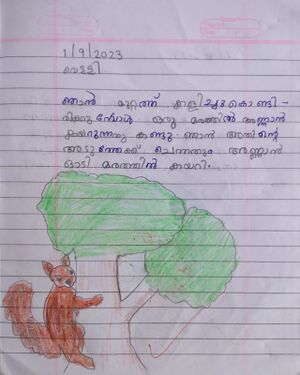 1/9/2023
വെള്ളി
ഞാൻ മുറ്റത്ത് കളിച്ചുകൊണ്ടി-
രിക്കുമ്പോൾ ഒരു മരത്തിൽ അണ്ണാൻ
കയറുന്നതു കണ്ടു. ഞാൻ അതിന്റെ
അടുത്തേക്ക് ചെന്നതും അണ്ണാൻ
ഓടി മരത്തിൽ കയറി.